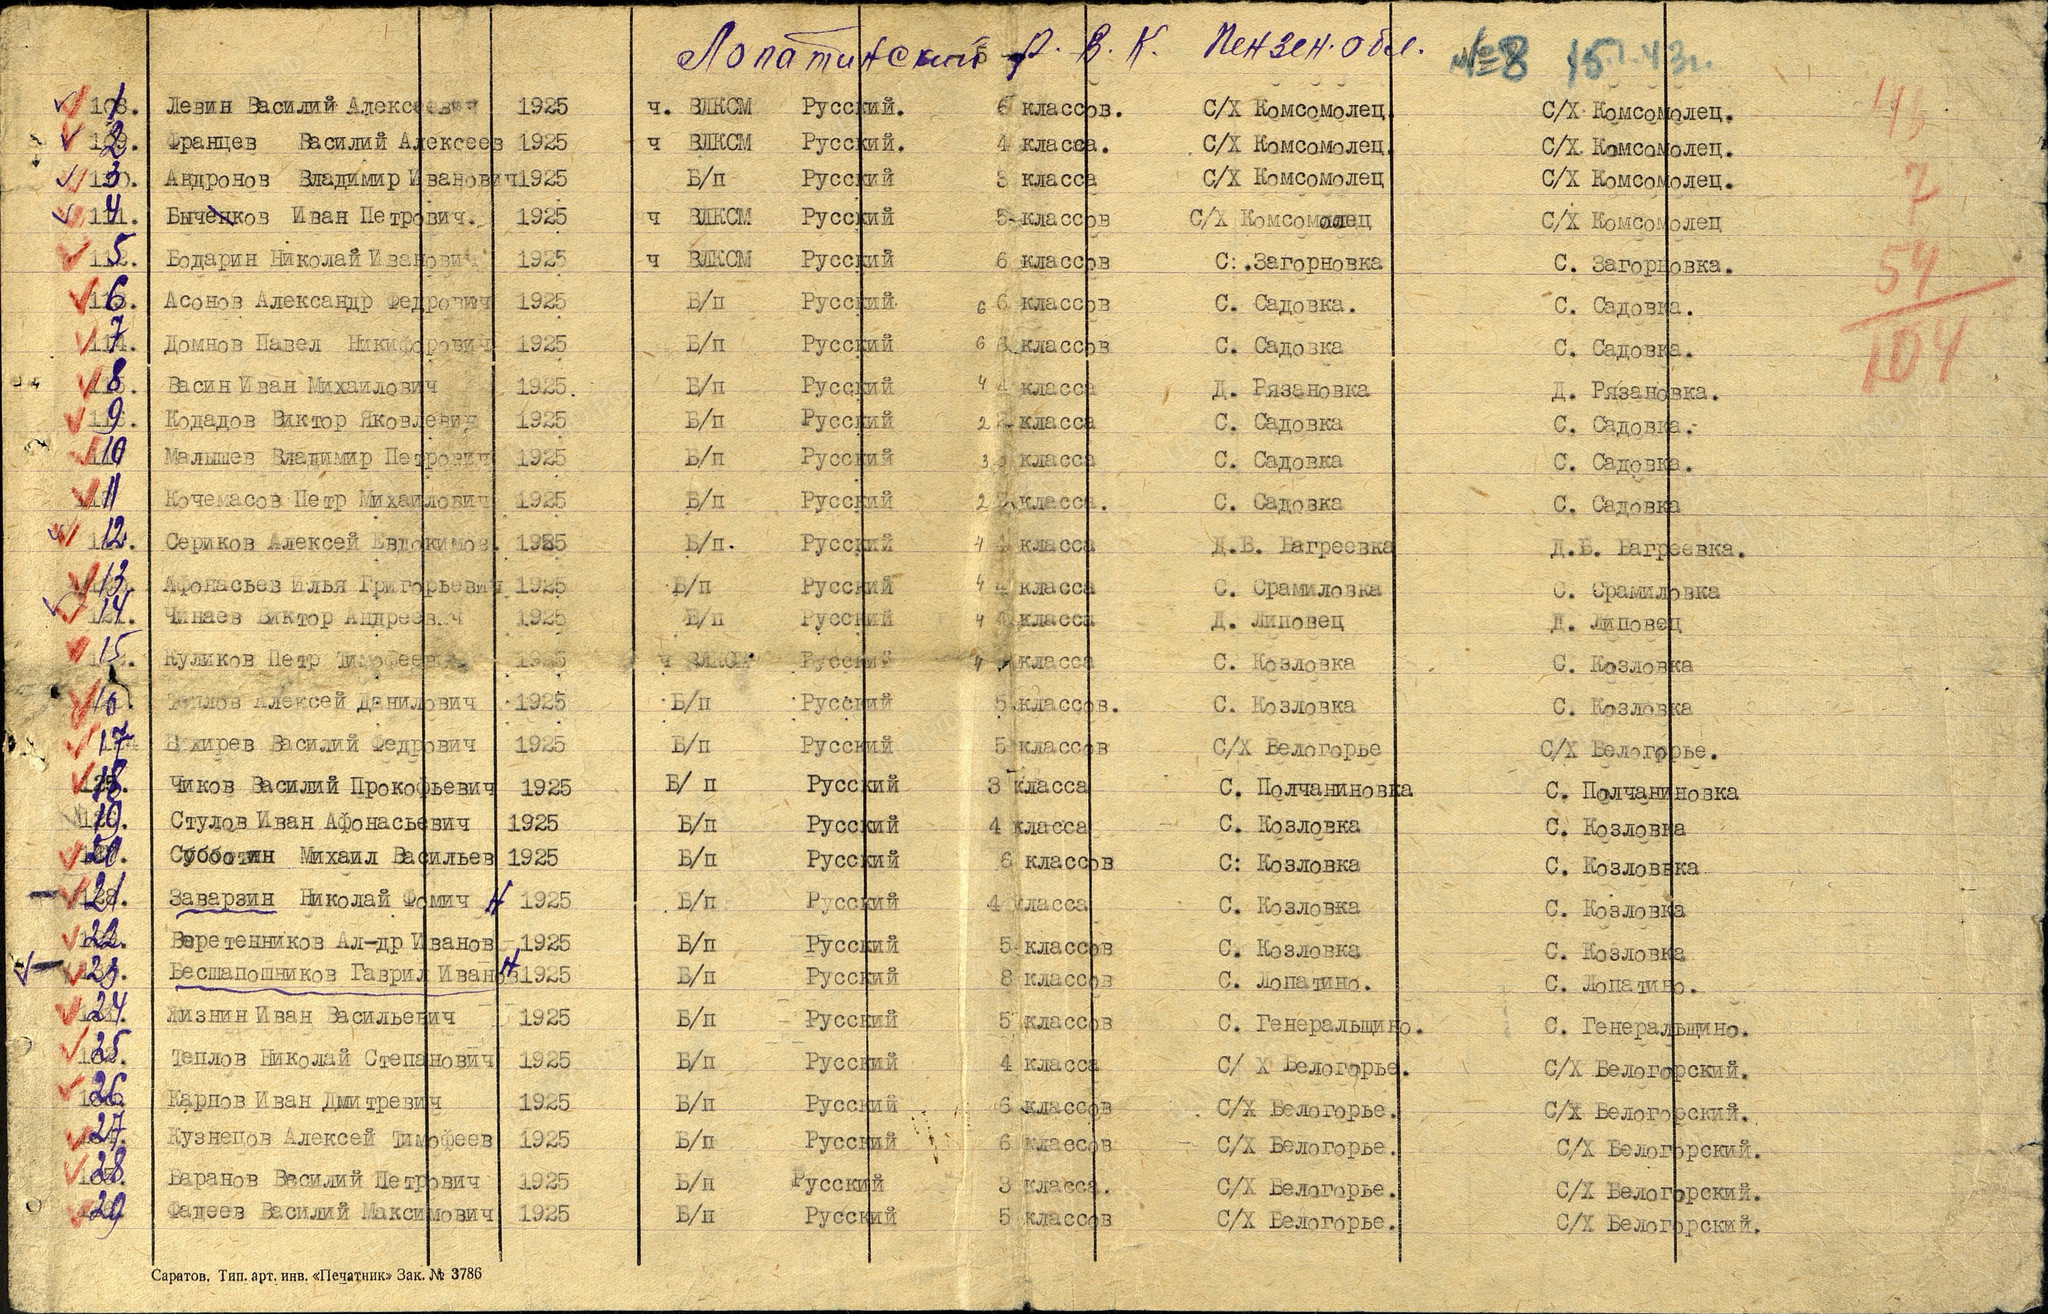 Лопатинский Р. В. К. Пензен. обл. №8 15.1.43г.
1 108. Левин Василий Алексеевич 1925 ч. ВЛКСМ Русский. 6 классов. С/Х Комсомолец. С/Х Комсомолец.
2 109. Францев Василий Алексеев 1925 ч ВЛКСМ Русский. 4 класса. С/Х Комсомолец. С/Х Комсомолец.
3 110. Андронов Владимир Иванович 1925 Б/п Русский 3 класса С/Х Комсомолец С/Х Комсомолец.
4 111. Быченков Иван Петрович. 1925 ч ВЛКСМ Русский 5 классов С/Х Комсомолец С/Х Комсомолец
5 112. Бодарин Николай Иванович 1925 ч ВЛКСМ Русский 6 классов С. Загорновка С. Загорновка.
6 113. Асонов Александр Федрович 1925 Б/п Русский 6 6 классов С. Садовка. С. Садовка.
7 114. Домнов Павел Никифорович 1925 Б/п Русский 6 классов С. Садовка С. Садовка.
8 115. Васин Иван Михаилович 1925. Б/п Русский 4 4 класса Д. Рязановка Д. Рязановка.
9 116. Кодадов Виктор Яковлевич 1925 Б/п Русский 2 2 класса С. Садовка С. Садовка.
10 Малышев Владимир Петрович 1925 Б/п Русский 3 класса С. Садовка С. Садовка.
11 Кочемасов Петр Михаилович 1925 Б/п Русский 2 класса. С. Садовка С. Садовка
12 Сериков Алексей Евдокимов. 1925 Б/п. Русский 4 4 класса Д.Б. Багреевка Д.Б. Багреевка.
13 Афонасьев Илья Григорьевич 1925 Б/п Русский 4 4 класса С. Срамиловка С. Срамиловка
14 121. Чинаев Виктор Андреевич 1925 Б/п Русский 4 4 класса Д. Липовец Д. Липовец
15 Куликов Петр Тимофеев 1925 ч ВЛКСМ Русский 4 класса С. Козловка С. Козловка
16 Теплов Алексей Данилович 1925 Б/п Русский 5 классов. С. Козловка С. Козловка
17 Вхирев Василий Федрович 1925 Б/п Русский 5 классов С/Х Белогорье С/Х Белогорье.
18 125. Чиков Василий Прокофьевич 1925 Б/ п Русский 3 класса С. Полчаниновка С. Полчаниновка
19 126. Стулов Иван Афонасьевич 1925 Б/п Русский 4 класса С. Козловка С. Козловка
20 127. Субботин Михаил Васильев 1925 Б/п Русский 6 классов С: Козловка С. Козловка
21 128. Заварзин Николай Фомич Н 1925 Б/п Русский 4 класса С. Козловка С. Козловка
22 129. Веретенников Ал-др Иванов 1925 Б/п Русский 5 классов С. Козловка С. Козловка
23 130. Бесшапошников Гаврил Иванов Н 1925 Б/п Русский 8 классов С. Лопатино. С. Лопатино.
24 131. Жизнин Иван Васильевич 1925 Б/п Русский 5 классов С. Генеральщино. С. Генеральщино.
25 132. Теплов Николай Степанович 1925 Б/п Русский 4 класса С/ Х Белогорье. С/Х Белогорский.
26 133. Карпов Иван Дмитревич 1925 Б/п Русский 6 классов С/Х Белогорье. С/Х Белогорский.
27 134. Кузнецов Алексей Тимофеев 1925 Б/п Русский 6 классов С/Х Белогорье. С/Х Белогорский.
28 135. Баранов Василий Петрович 1925 Б/п Русский 3 класса. С/Х Белогорье. С/Х Белогорский.
29 Фадеев Василий Максимович 1925 Б/п Русский 5 классов С/Х Белогорье. С/Х Белогорский.
7
54
104
Саратов. Тип. арт. инв. «Печатник» Зак. № 3786